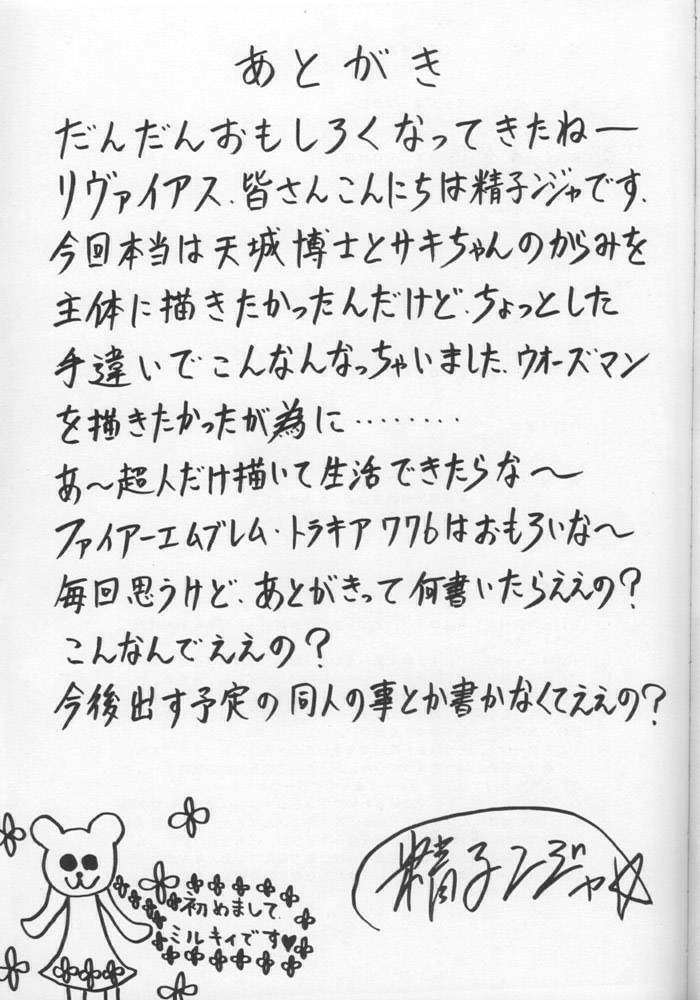 あとがき
だんだんおもしろくなってきたねー
リヴァイアス、皆さんこんにちは精子ンジャです、
今回本当は天城博士とサキちゃんのがらみを
主体に描きたかったんだけど、ちょっとした
手違いでこんなんなっちゃいました、ウオーズマン
を描きたかったが為に‥‥‥‥
あ〜超人だけ描いて生活できたらな〜
ファイアーエムブレム・トラキア776はおもろいな〜
毎回思うけど、あとがきって何書いたらええの?
こんなんでええの?
今後出す予定の同人の事とか書かなくてええの?
初めまして、
ミルキィです♥
精子ンジャ☆